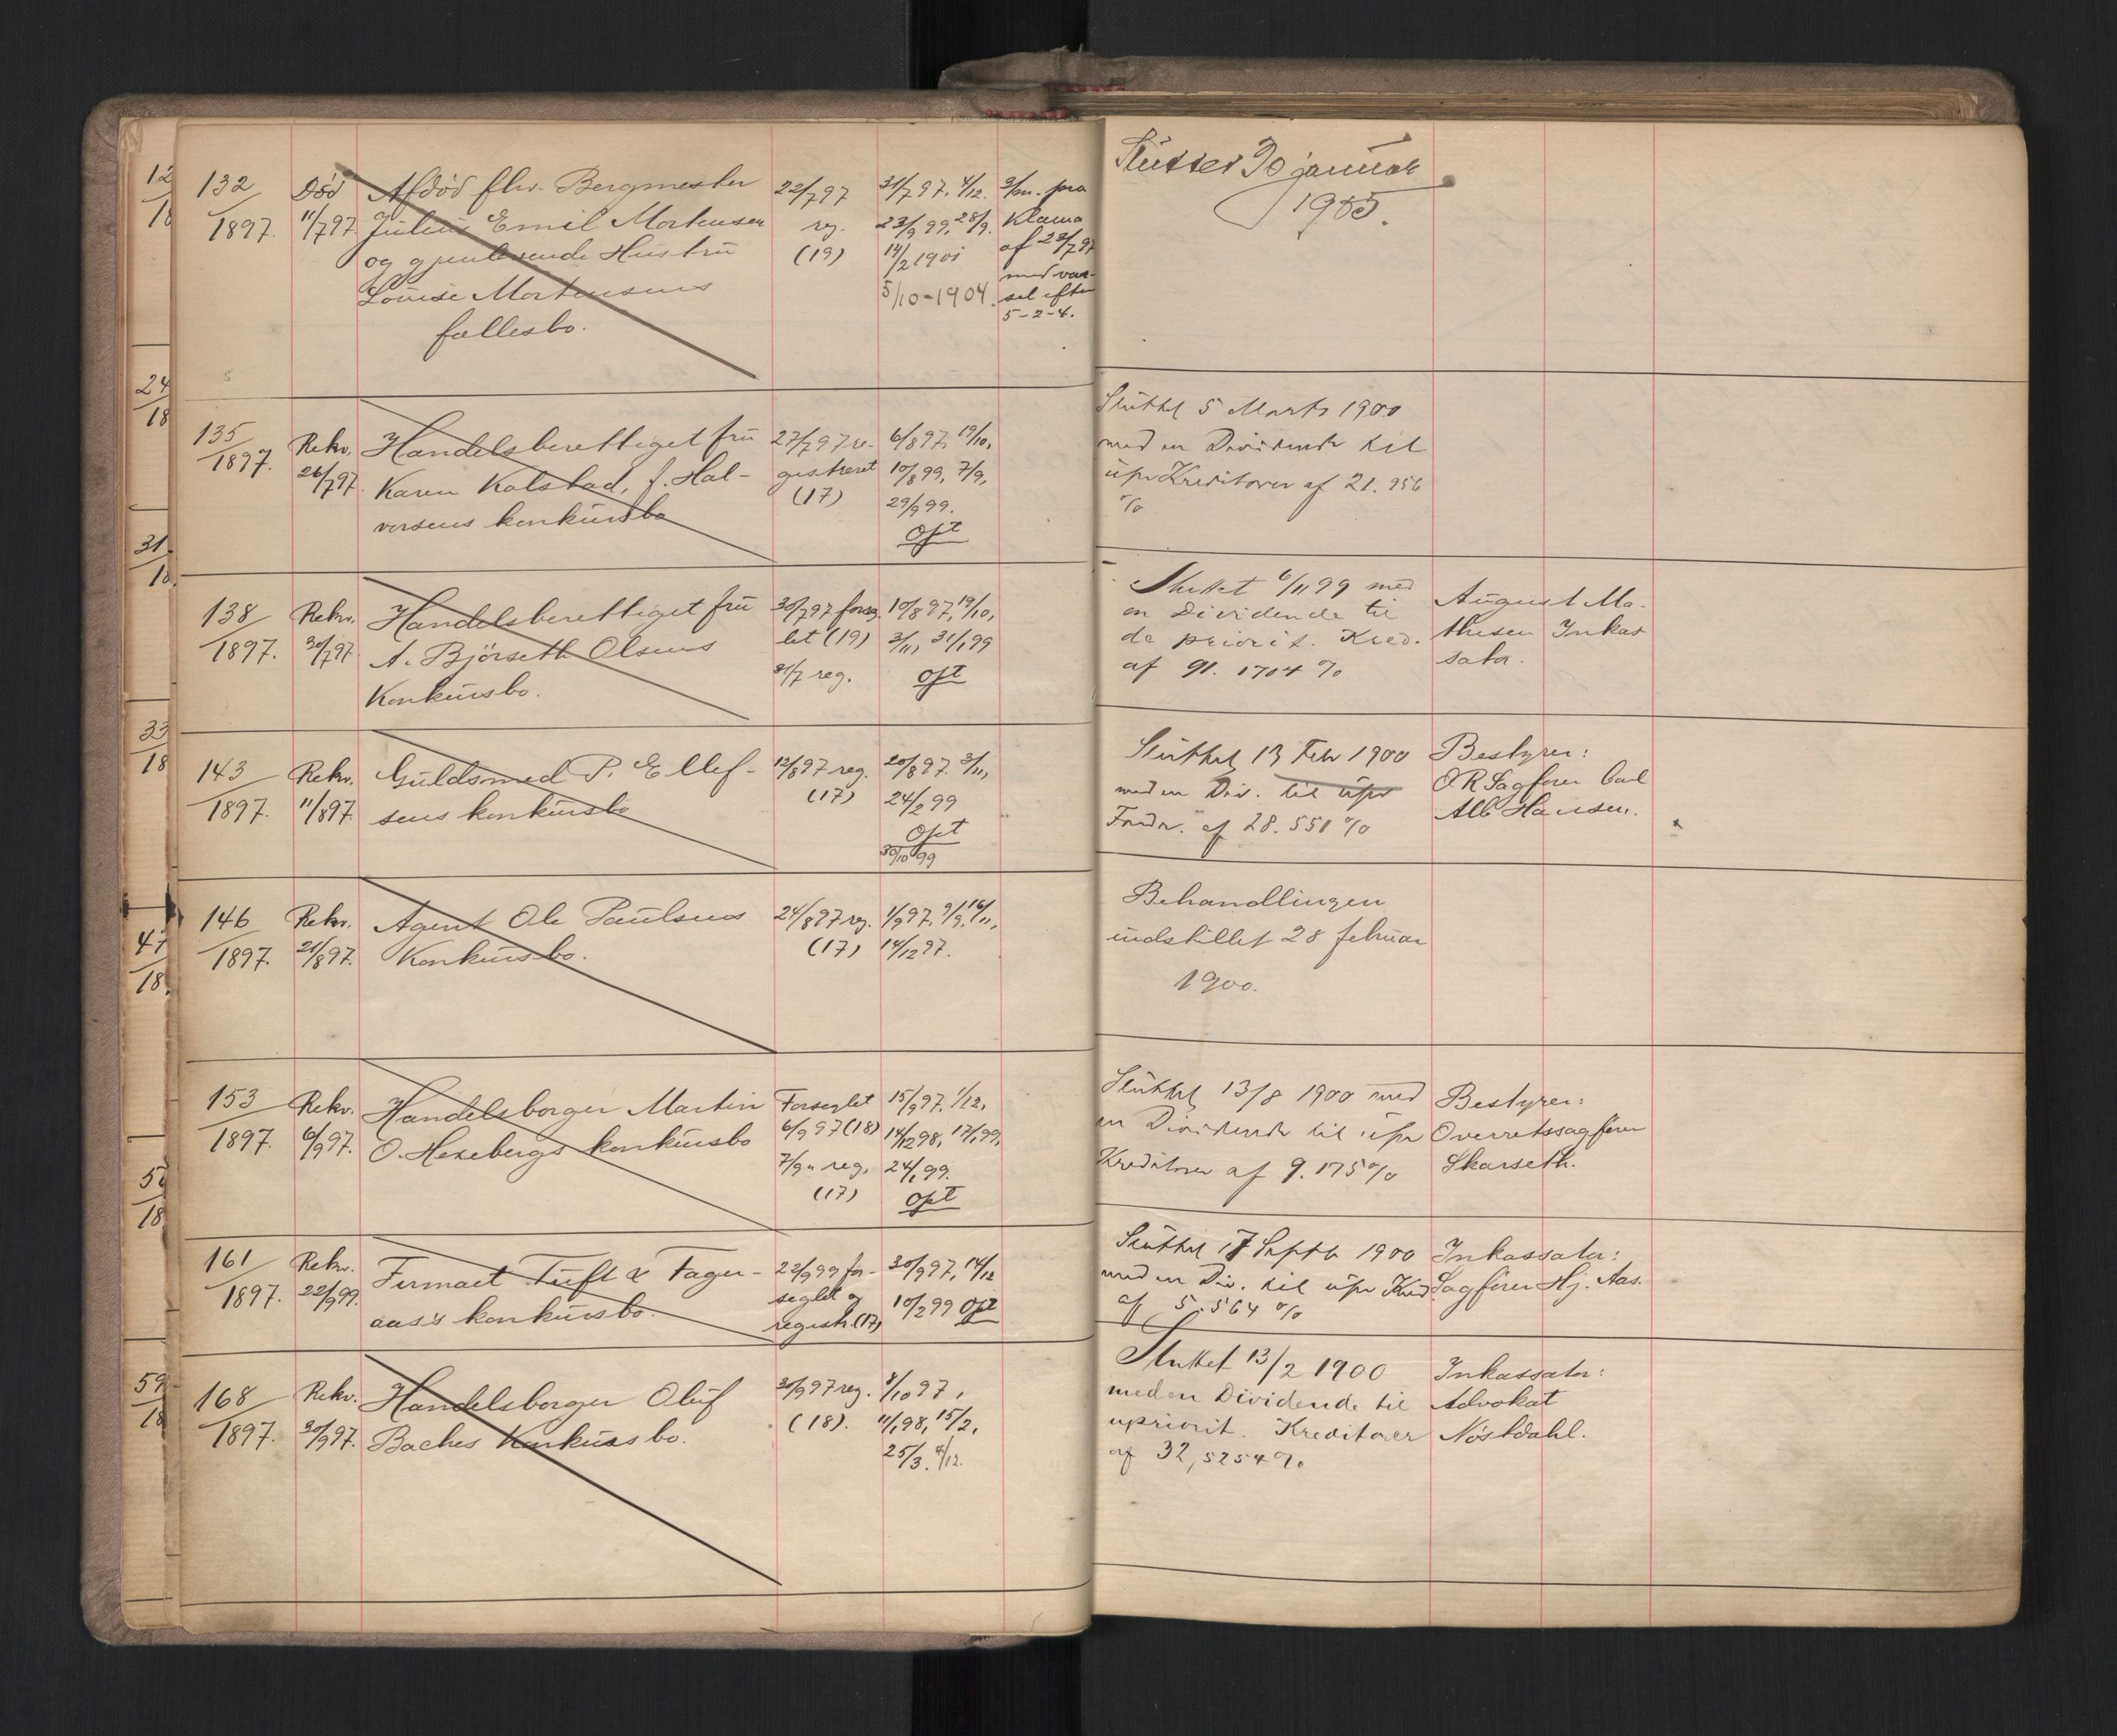 132
1897.
Död
11/7 97.
Afdöd fhv. Bergmester
Julius Emil Mortensen
og gjenlevende Hustru
Louise Mortensens
fællesbo.
22/7 97
reg.
(19)
31/7 97. 4/12.
23/9 99, 28/9.
14/2 1901
5/10-1904.
3/m. pro
klama
af 23/7 97
med var-
sel efter
5-2-4.
Sluttet 30 januar
1905.
135
1897.
Rekv.
26/7 97.
Handelsberettiget fru
Karen Kolstad, f. Hal-
vorsens konkursbo
27/7 97 re-
gistreret
(17)
6/8 97, 19/10,
10/8 99, 7/9,
29/9 99.
Opt
Sluttet 5 Marts 1900
med en Dividende til
upr Kreditorer af 21.956
%
138
1897.
Rekv.
30/7 97.
Handelsberettiget fru
A. Björseth Olsens
Konkursbo.
30/7 97 forseg
let (19)
31/7 reg.
10/8 97, 19/10,
3/11, 31/1 99
Opt
Sluttet 6/11 99 med
en Dividende til
de priorit. Kred.
af 91.1704 %
August Ma-
thesen Inkas
sator.
143
1897.
Rekv.
11/8 97.
Guldsmed P. Ellef-
sens konkursbo
12/8 97 reg.
(17)
20/8 97. 3/11,
24/2 99
Opt
30/10 99
Sluttet 13 Feb 1900
med en Div. til upr
Fordr. af 28.551 %
Bestyrer:
O R Sagfører Carl
Alb Hansen.
146
1897.
Rekv.
21/8 97.
Agent Ole Paulsens
Konkursbo.
24/8 97 reg.
(17)
1/9 97, 9/9, 16/11,
14/12 97.
Behandlingen
indstillet 28 februar
1900.
153
1897.
Rekv.
6/9 97.
Handelsborger Martin
O. Hexebergs konkursbo
Forseglet
6/9 97 (18)
7/9 " reg,
(17)
15/9 97, 1/12,
14/12 98, 17/1 99,
24/1 99.
Opt
Sluttet 13/8 1900 med
en Dividende til upr
Kreditorer af 9.175 %
Bestyrer:
Overretssagfører
Skarseth.
161
1897.
Rekv.
22/9 99.
Firmaet Tuft & Fager-
aas's konkursbo.
22/9 99 for-
seglet og
registr. (17)
30/9 97, 14/12
10/2 99 Opt
Sluttet 17 Septb 1900
med en Div. til upr Kred
af 5.564 %
Inkassator:
Sagfører Hj. Aas.
168
1897.
Rekv.
30/9 97.
Handelsborger Oluf
Baches Konkursbo.
30/9 97 reg.
(18).
8/10 97,
11/1 98, 15/2,
25/3. 4/12.
Sluttet 13/2 1900
med en Dividende til
upriorit. Kreditorer
af 32,5254 %
Inkassator:
Advokat
Nöstdahl.